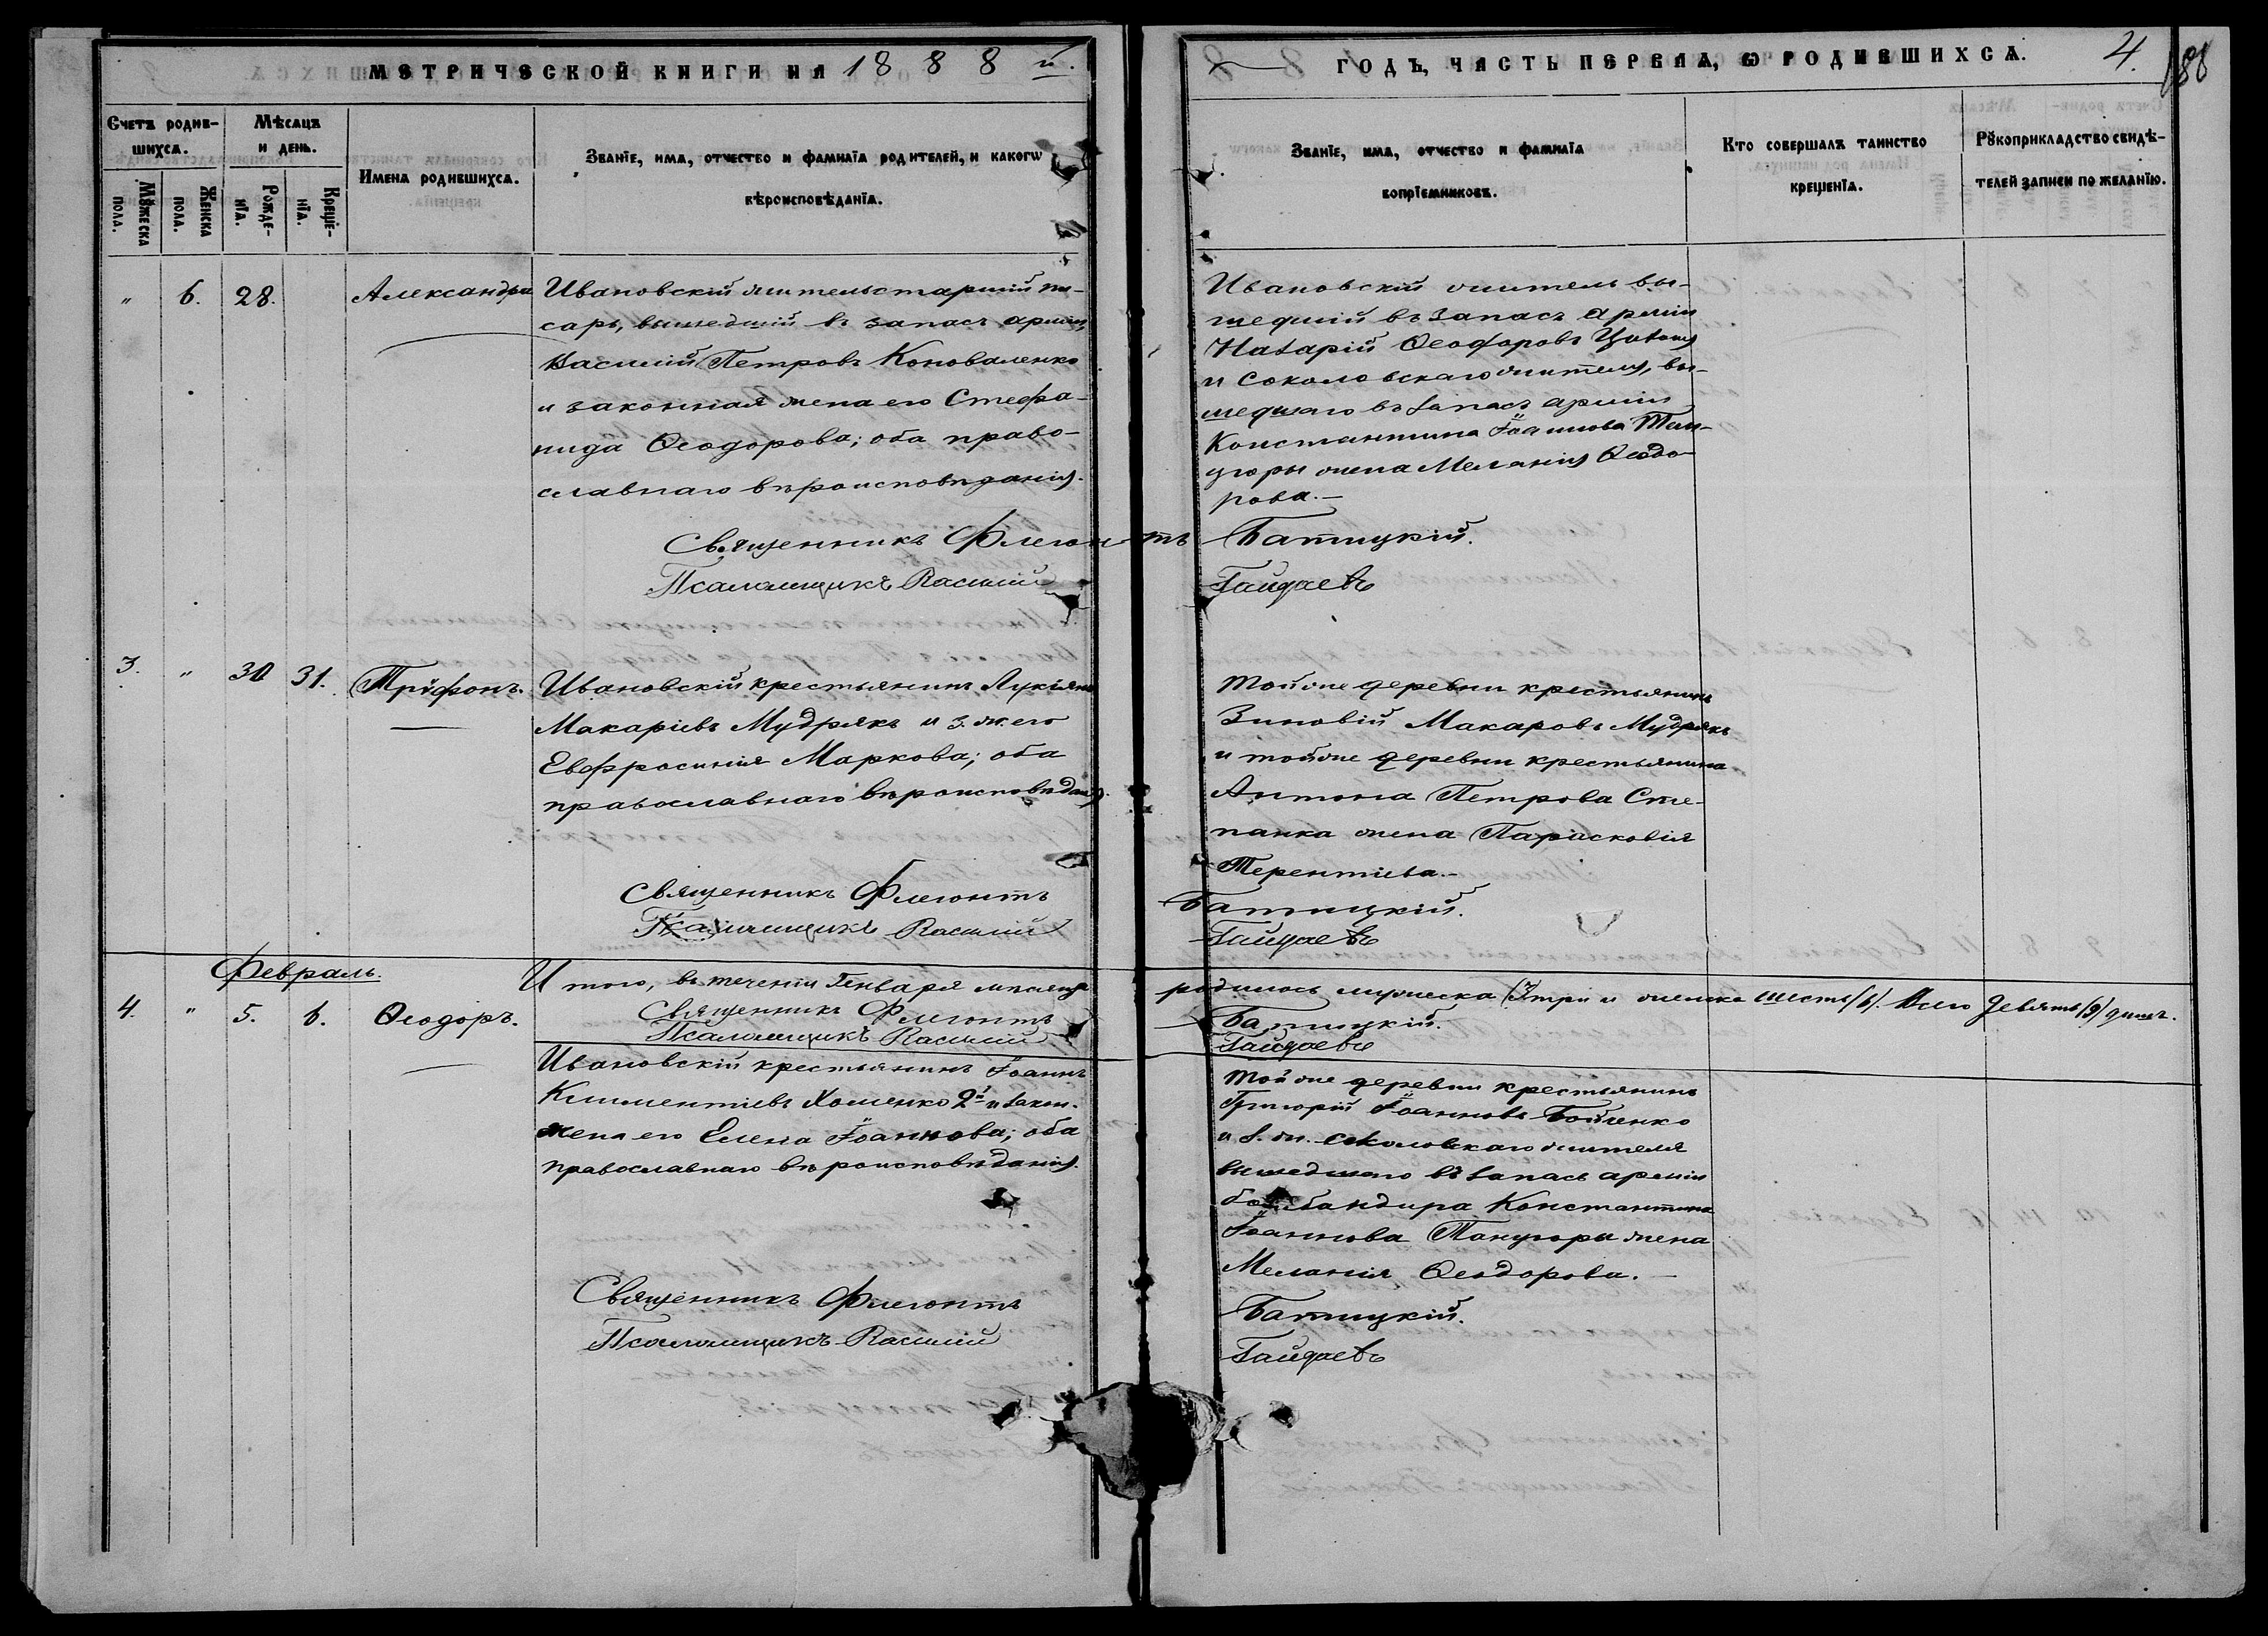 МЕТРИЧЕСКОЙ КНИГИ НА 1888 й.
ГОДЪ, ЧАСТЬ ПЕРВАЯ, Ѡ РОДИВШИХСЯ. 4.
Счетъ родившихся.
Мѣсяцъ и день.
Имена родившихся.
Званїе, имя, отчество и фамилїа родителей, и какогѡ
вѣроисповѣданїя.
Мꙋжеска пола.
Женска пола.
Рожде-
нїя.
Креще-
нїя.
Званїе, имя, отчество и фамилїа
воспрїемниковъ.
Кто совершалъ таинство
крещенїя.
Рꙋкоприкладство свидѣ-
телей записи по желанїю.
„ 6. 28. Александра
Ивановскій житель старшій пи-
сарь, вышедшій въ запасъ арміи,
Василій Петровъ Коноваленко
и законная жена его Стефа-
нида Ѳеодорова; оба право-
славнаго вѣроисповѣданія.
Ивановскій житель вы-
шедшій въ запасъ арміи
Назарій Ѳеодоровъ
и Соколовскаго жителя, вы-
шедшаго въ запасъ арміи
Константина Іоаннова Тан-
цюры жена Меланія Ѳеодо-
рова.—
Священникъ Флегонтъ Батицкій.
Псаломщикъ Василій Гайдаевъ
3. „ 30 31. Трѵфонъ.
Ивановскій крестьянинъ Лукіянъ
Макаріевъ Мудрякъ и з. ж. его
Евфросинія Маркова; оба
православнаго вѣроисповѣданія.
Той же деревни крестьянинъ
Зиновій Макаровъ Мудрякъ
и той же деревни крестьянина
Антона Петрова Сте-
панка жена Парасковія
Терентіева.—
Священникъ Флегонтъ Батицкій.
Псаломщикъ Василій Гайдаевъ
Итого, въ теченіи Генваря мѣсяца родилось мужеска (3) три и женска шесть (6). Всего девять (9) душъ.
Священникъ Флегонтъ Батицкій.
Псаломщикъ Василій Гайдаевъ
Февраль.
4. „ 5. 6. Ѳеодоръ.
Ивановскій крестьянинъ Іоаннъ
Климентіевъ Хоменко 2й и закон.
жена его Елена Іоаннова; оба
православнаго вѣроисповѣданія.
Той же деревни крестьянинъ
Григорій Іоанновъ Бойченко
и з. ж. Соколовскаго жителя
вышедшаго въ запасъ арміи
бомбандира Константина
Іоаннова Танцюры жена
Меланія Ѳеодорова.—
Священникъ Флегонтъ Батицкій.
Псаломщикъ Василій Гайдаевъ